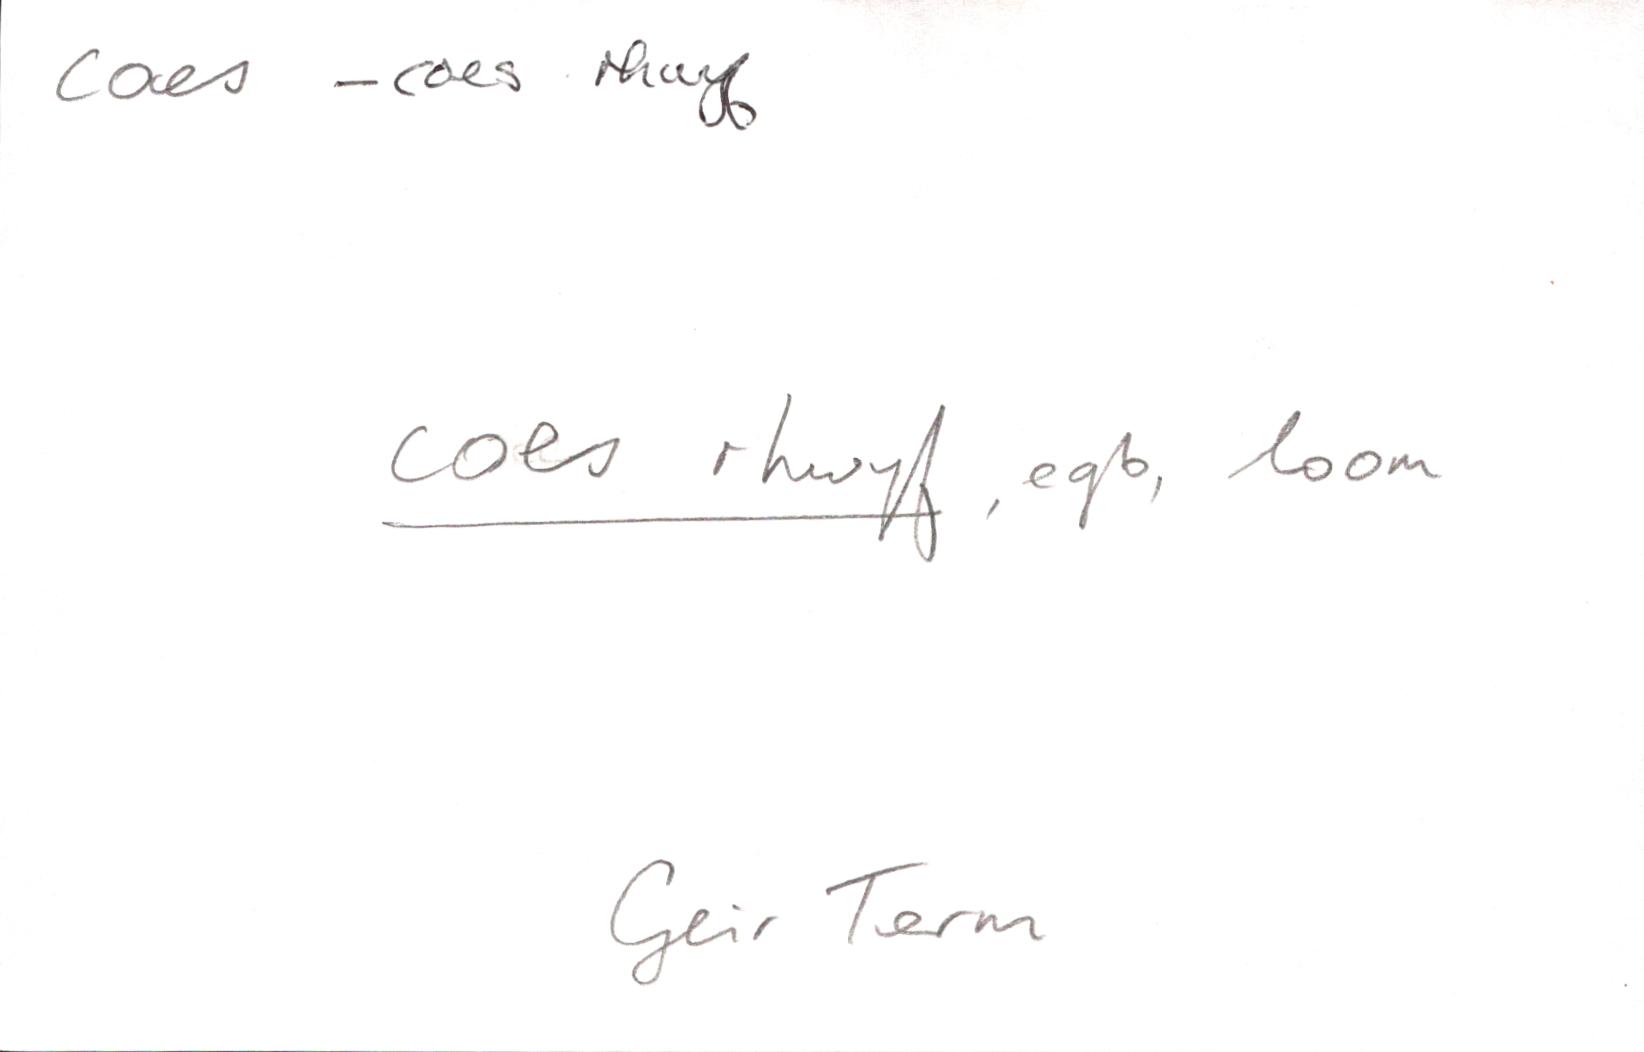 coes – coes rhwyf
coes rhwyf, egb, loom
Geir Term